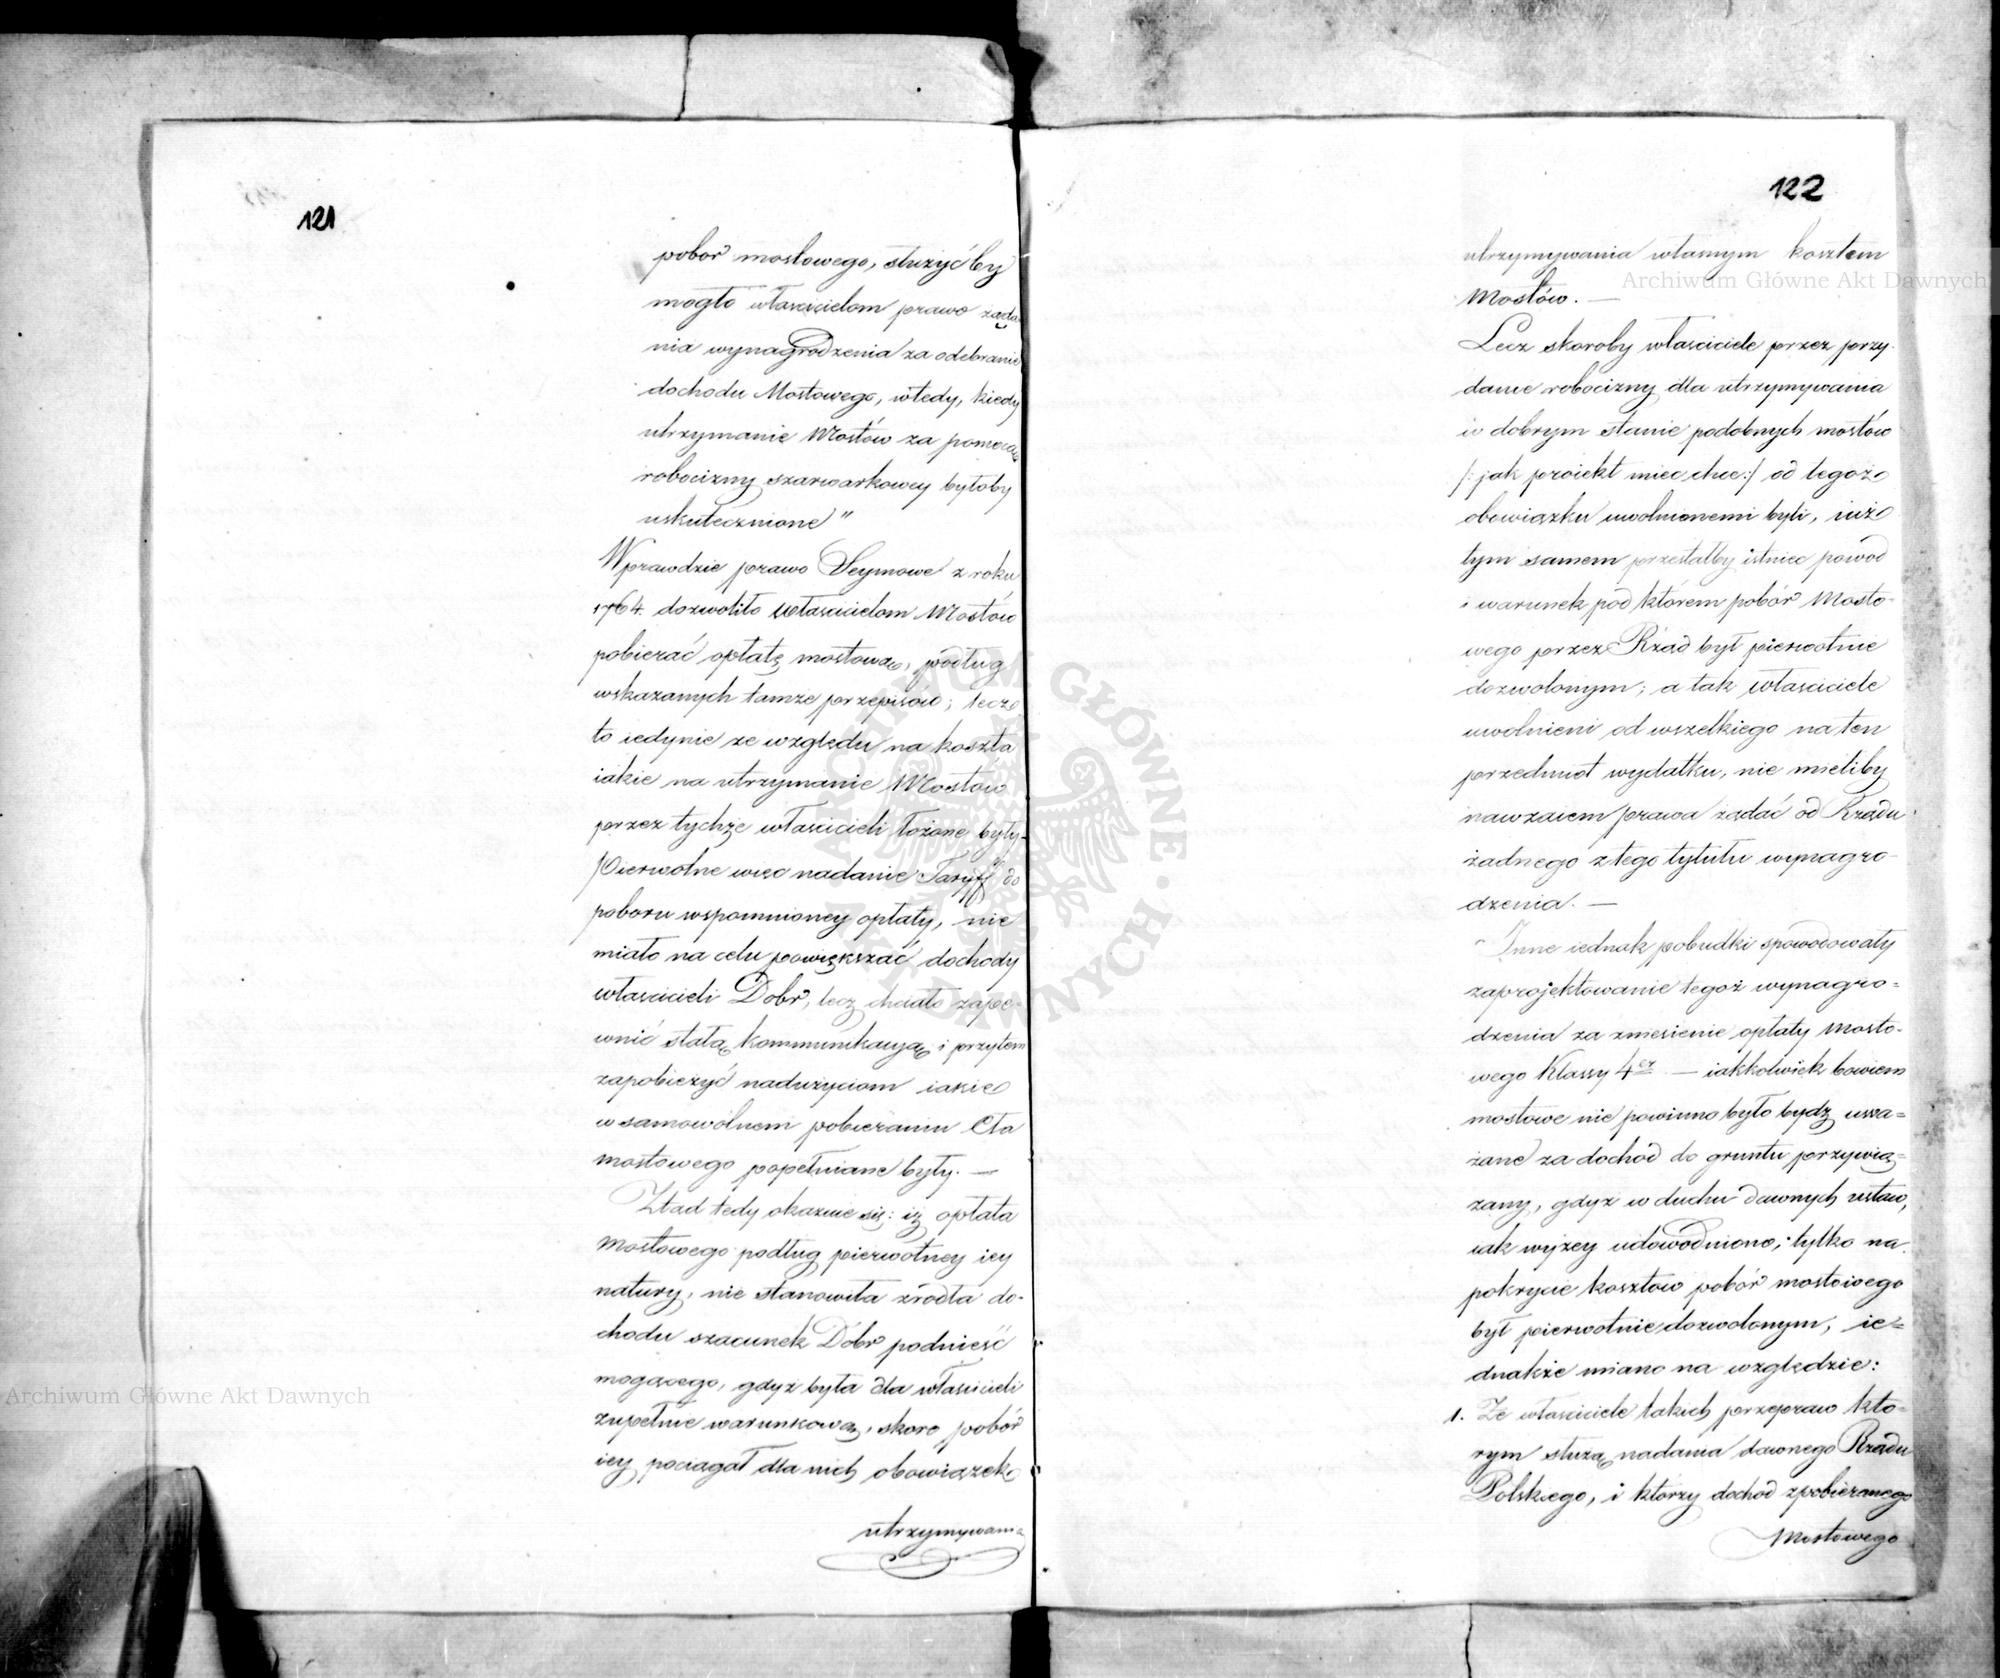 121
pobor mostowego, służyć by
mogło właścicielom prawo żąda
nia wynagrodzenia za odebranie
dochodu Mostowego, wtedy, kiedy
utrzymanie Mostów za pomocą
robocizny szarwarkowey byłoby
uskutecznione"
Wprawdzie prawo Seymowe z roku
1764 dozwoliło właścicielom Mostów
pobierać opłatę mostową, podług
wskazanych tamże przepisów; lecz
to iedynie ze względu na koszta
iakie na utrzymanie Mostów
przez tychże właścicieli łożone były.
Pierwotne więc nadanie Taryff do
poboru wspomnioney opłaty, nie
miało na celu powiększać dochody
właścicieli Dobr, lecz chciało zape-
wnić stałą kommunikacyą i przytem
zapobieżyć nadużyciom iakie
w samowolnem pobieraniu Cła
mostowego popełniane były. —
Ztąd tedy okazuie się: iż opłata
Mostowego podług pierwotney iey
natury, nie stanowiła źródła do-
chodu szacunek Dóbr podnieść
mogącego, gdyż była dla właścicieli
zupełnie warunkową, skoro pobór
iey pociągał dla nich obowiązek
utrzymywania
122
utrzymywania własnym kosztem
Mostów. —
Lecz skoroby właściciele przez przy-
danie robocizny dla utrzymywania
w dobrym stanie podobnych mostów
/: jak proiekt miec chce :/ od tegoż
obowiązku uwolnionemi byli, iuż
tym samem przestałby istniec powod
i warunek pod którem pobór Mosto-
wego przez Rząd był pierwotnie
dozwolonym; a tak właściciele
uwolnieni od wszelkiego na ten
przedmiot wydatku, nie mieliby
nawzaiem prawa żądać od Rządu
żadnego z tego tytułu wynagro-
dzenia. —
Inne iednak pobudki spowodowały
zaprojektowanie tegoż wynagro=
dzenia za zniesienie opłaty mosto-
wego Klassy 4ey — iakkolwiek bowiem
mostowe nie powinno było bydź uwa=
żane za dochod do gruntu przywią=
zany, gdyż w duchu dawnych ustaw,
iak wyżey udowodniono, tylko na
pokrycie kosztow pobór mostowego
był pierwotnie dozwolonym, ie=
dnakże miano na względzie:
1. Że właściciele takich przepraw kto-
rym służą nadania dawnego Rządu
Polskiego, i ktorzy dochod z pobieranego
Mostowego
Archiwum Główne Akt Dawnych
Archiwum Główne Akt Dawnych
ARCHIWUM GŁÓWNE AKT DAWNYCH